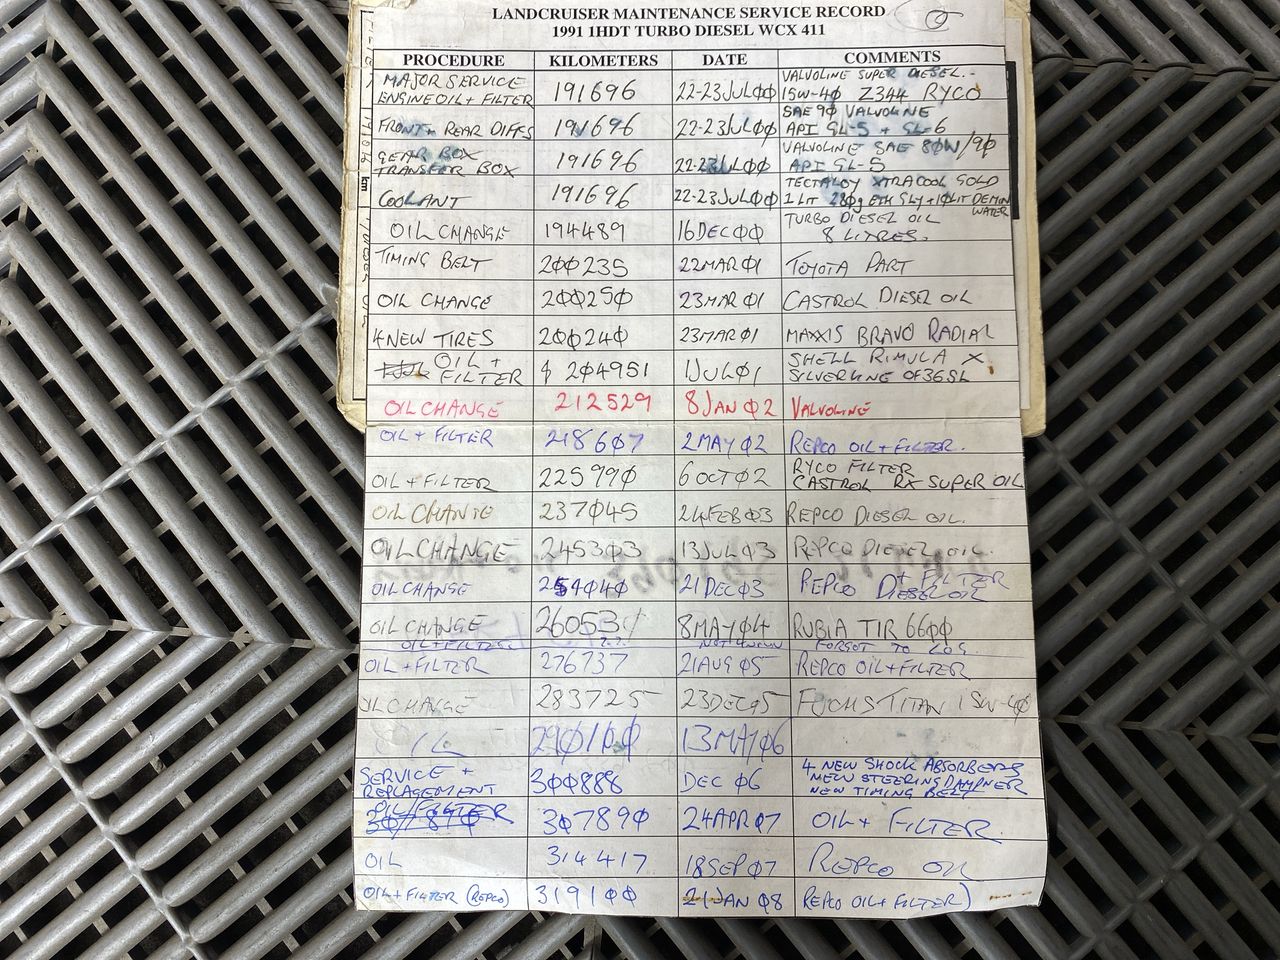 LANDCRUISER MAINTENANCE SERVICE RECORD
1991 1HDT TURBO DIESEL WCX 411
PROCEDURE KILOMETERS DATE COMMENTS
MAJOR SERVICE ENGINE OIL + FILTER 191696 22-23JULØØ VALVOLINE SUPER DIESEL. 15W-4Ø Z344 RYCO
FRONT + REAR DIFFS 191696 22-23JULØØ SAE 9Ø VALVOLINE API GL-5 + GL-6
GEAR BOX TRANSFER BOX 191696 22-23JULØØ VALVOLINE SAE 8ØW/9Ø API GL-5
COOLANT 191696 22-23JULØØ TECTALOY XTRACOOL GOLD 1 LIT DEMIN WATER
OIL CHANGE 194489 16DECØØ TURBO DIESEL OIL 8 LITRES.
TIMING BELT 2ØØ235 22MARØ1 TOYOTA PART
OIL CHANGE 2ØØ25Ø 23MARØ1 CASTROL DIESEL OIL
4 NEW TIRES 2ØØ24Ø 23MARØ1 MAXXIS BRAVO RADIAL
OIL + FILTER 2Ø4951 1JULØ1 SHELL RIMULA X SILVERLINE OF36SL
OIL CHANGE 212529 8JANØ2 VALVOLINE
OIL + FILTER 2186Ø7 2MAYØ2 REPCO OIL + FILTER.
OIL + FILTER 22599Ø 6OCTØ2 RYCO FILTER CASTROL RX SUPER OIL
OIL CHANGE 237Ø45 24FEBØ3 REPCO DIESEL OIL.
OIL CHANGE 2453Ø3 13JULØ3 REPCO DIESEL OIL.
OIL CHANGE 254Ø4Ø 21DECØ3 REPCO + FILTER DIESEL OIL
OIL CHANGE 8MAYØ4 RUBIA TIR 66ØØ
OIL + FILTER ?.?. NOT KNOWN FORGOT TO LOG.
OIL + FILTER 276737 21AUGØ5 REPCO OIL + FILTER
OIL CHANGE 283725 23DECØ5 FUCHS TITAN 15W-4Ø
OIL 29Ø1ØØ 13MAYØ6
SERVICE + REPLACEMENT 3ØØ888 DECØ6 4 NEW SHOCK ABSORBERS NEW STEERING DAMPNER NEW TIMING BELT
OIL/FILTER 3Ø789Ø 24APRØ7 OIL + FILTER
OIL 314417 18SEPØ7 REPCO OIL
OIL + FILTER (REPCO) 3191ØØ 21JANØ8 REPCO OIL + FILTER)